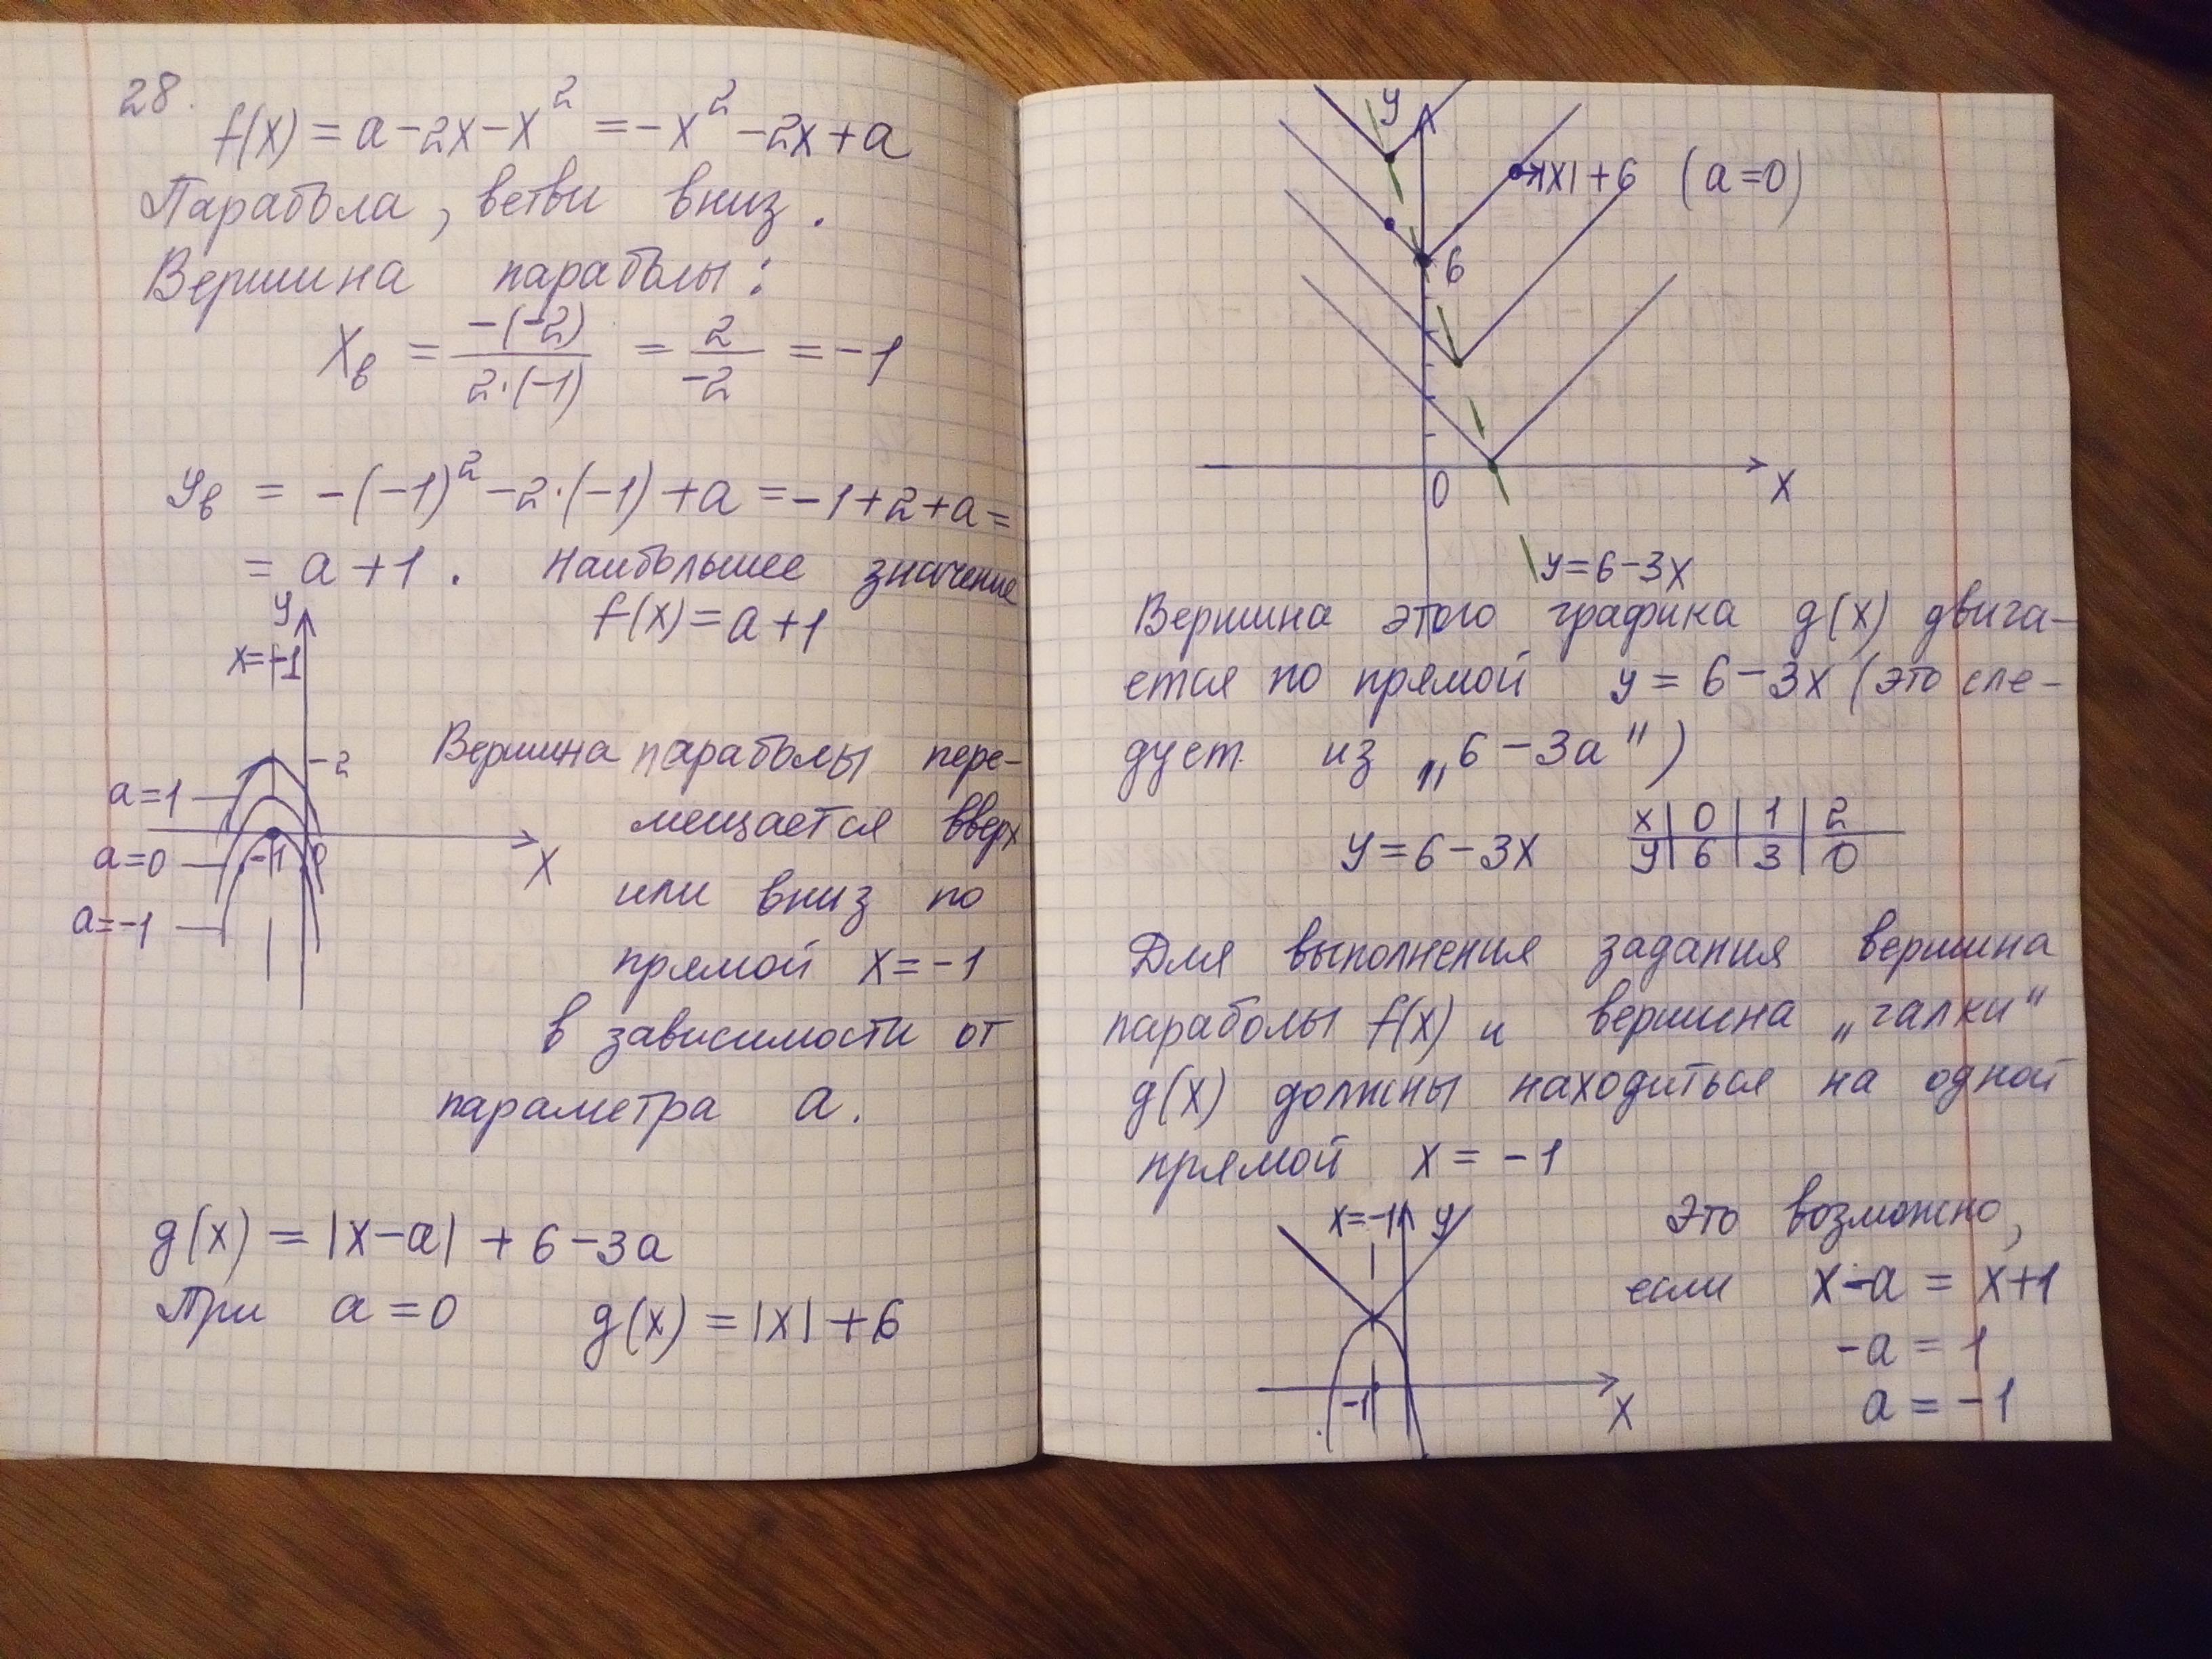 28.
f(x) = a - 2x - x² = -x² - 2x + a
Парабола, ветви вниз.
Вершина параболы:
xв = -(-2) / 2·(-1) = 2 / -2 = -1
yв = -(-1)² - 2·(-1) + a = -1 + 2 + a =
= a + 1. Наибольшее значение
f(x) = a + 1
y
x = -1
2
a = 1
a = 0
a = -1
-1
0
x
Вершина параболы пере-
мещается вверх
или вниз по
прямой x = -1
в зависимости от
параметра a.
g(x) = |x - a| + 6 - 3a
При a = 0 g(x) = |x| + 6
y
|x| + 6 (a = 0)
6
0
x
y = 6 - 3x
Вершина этого графика g(x) двига-
ется по прямой y = 6 - 3x (это сле-
дует из „6 - 3a")
y = 6 - 3x
x | 0 | 1 | 2
y | 6 | 3 | 0
Для выполнения задания вершина
параболы f(x) и вершина „галки"
g(x) должны находиться на одной
прямой x = -1
x = -1
y
-1
x
Это возможно,
если x - a = x + 1
-a = 1
a = -1